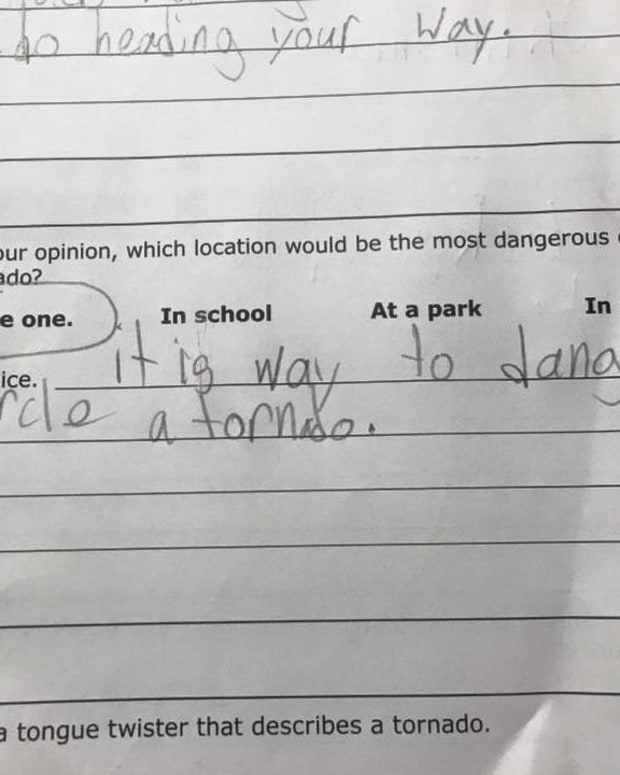 do heading your way.
our opinion, which location would be the most dangerous
ado?
e one. In school At a park In
ice. it is way to dang
rcle a tornado.
a tongue twister that describes a tornado.